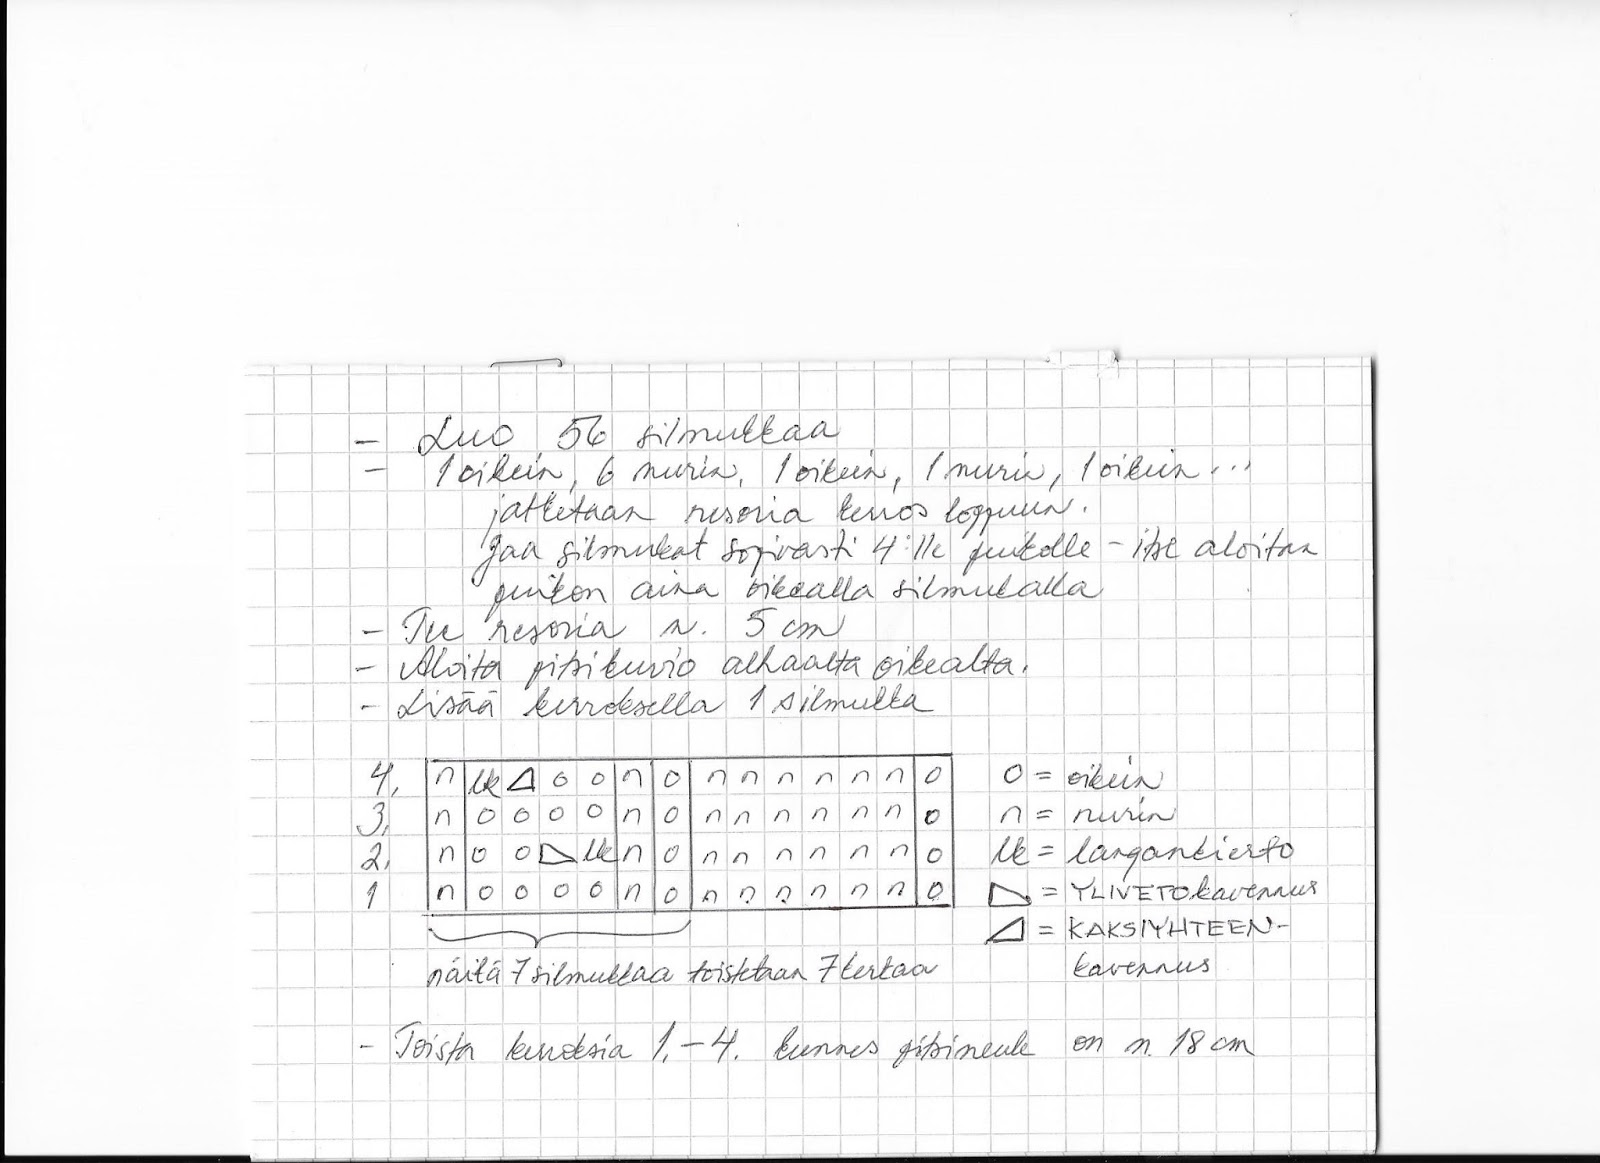 - Luo 56 silmukkaa
- 1 oikein, 6 nurin, 1 oikein, 1 nurin, 1 oikein...
jatketaan resoria kerros loppuun.
Jaa silmukat sopivasti 4:lle puikolle - itse aloitan
puikon aina oikealla silmukalla
- Tee resoria n. 5 cm
- Aloita pitsikuvio alhaalta oikealta.
- Lisää kerroksella 1 silmukka
4. n lk o o n o n n n n n n o o = oikein
3. n o o o o n o n n n n n n o n = nurin
2. n o o lk n o n n n n n n o lk = langankierto
1 n o o o o n o n n n n n n o = YLIVETOkavennus
= KAKSIYHTEEN-
kavennus
näitä 7 silmukkaa toistetaan 7 kertaa
- Toista kerroksia 1.-4. kunnes pitsineule on n. 18 cm